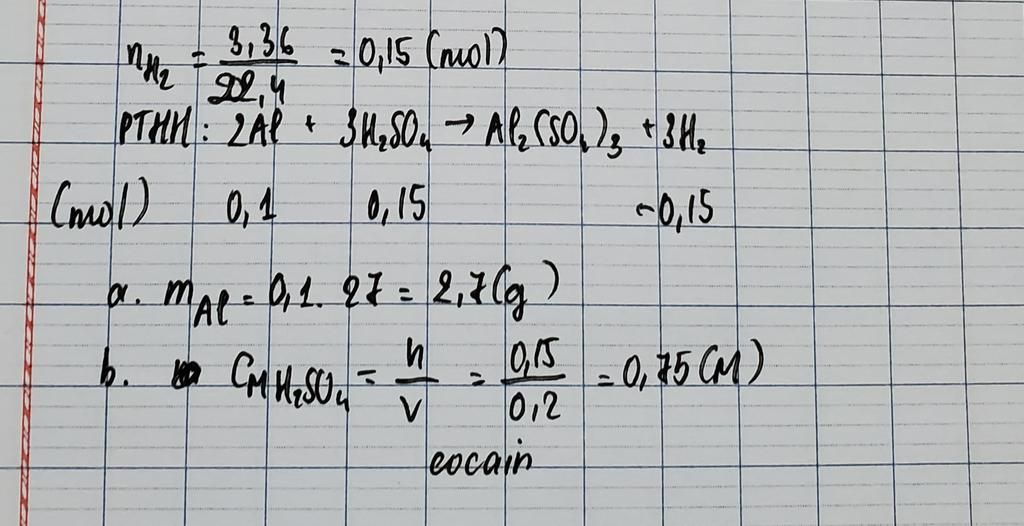 nH₂ = 3,36 / 22,4 = 0,15 (mol)
PTHH: 2Al + 3H₂SO₄ → Al₂(SO₄)₃ + 3H₂
(mol) 0,1 0,15 -0,15
a. mAl = 0,1. 27 = 2,7(g)
b. CM H₂SO₄ = n / v = 0,15 / 0,2 = 0,75(M)
cocain